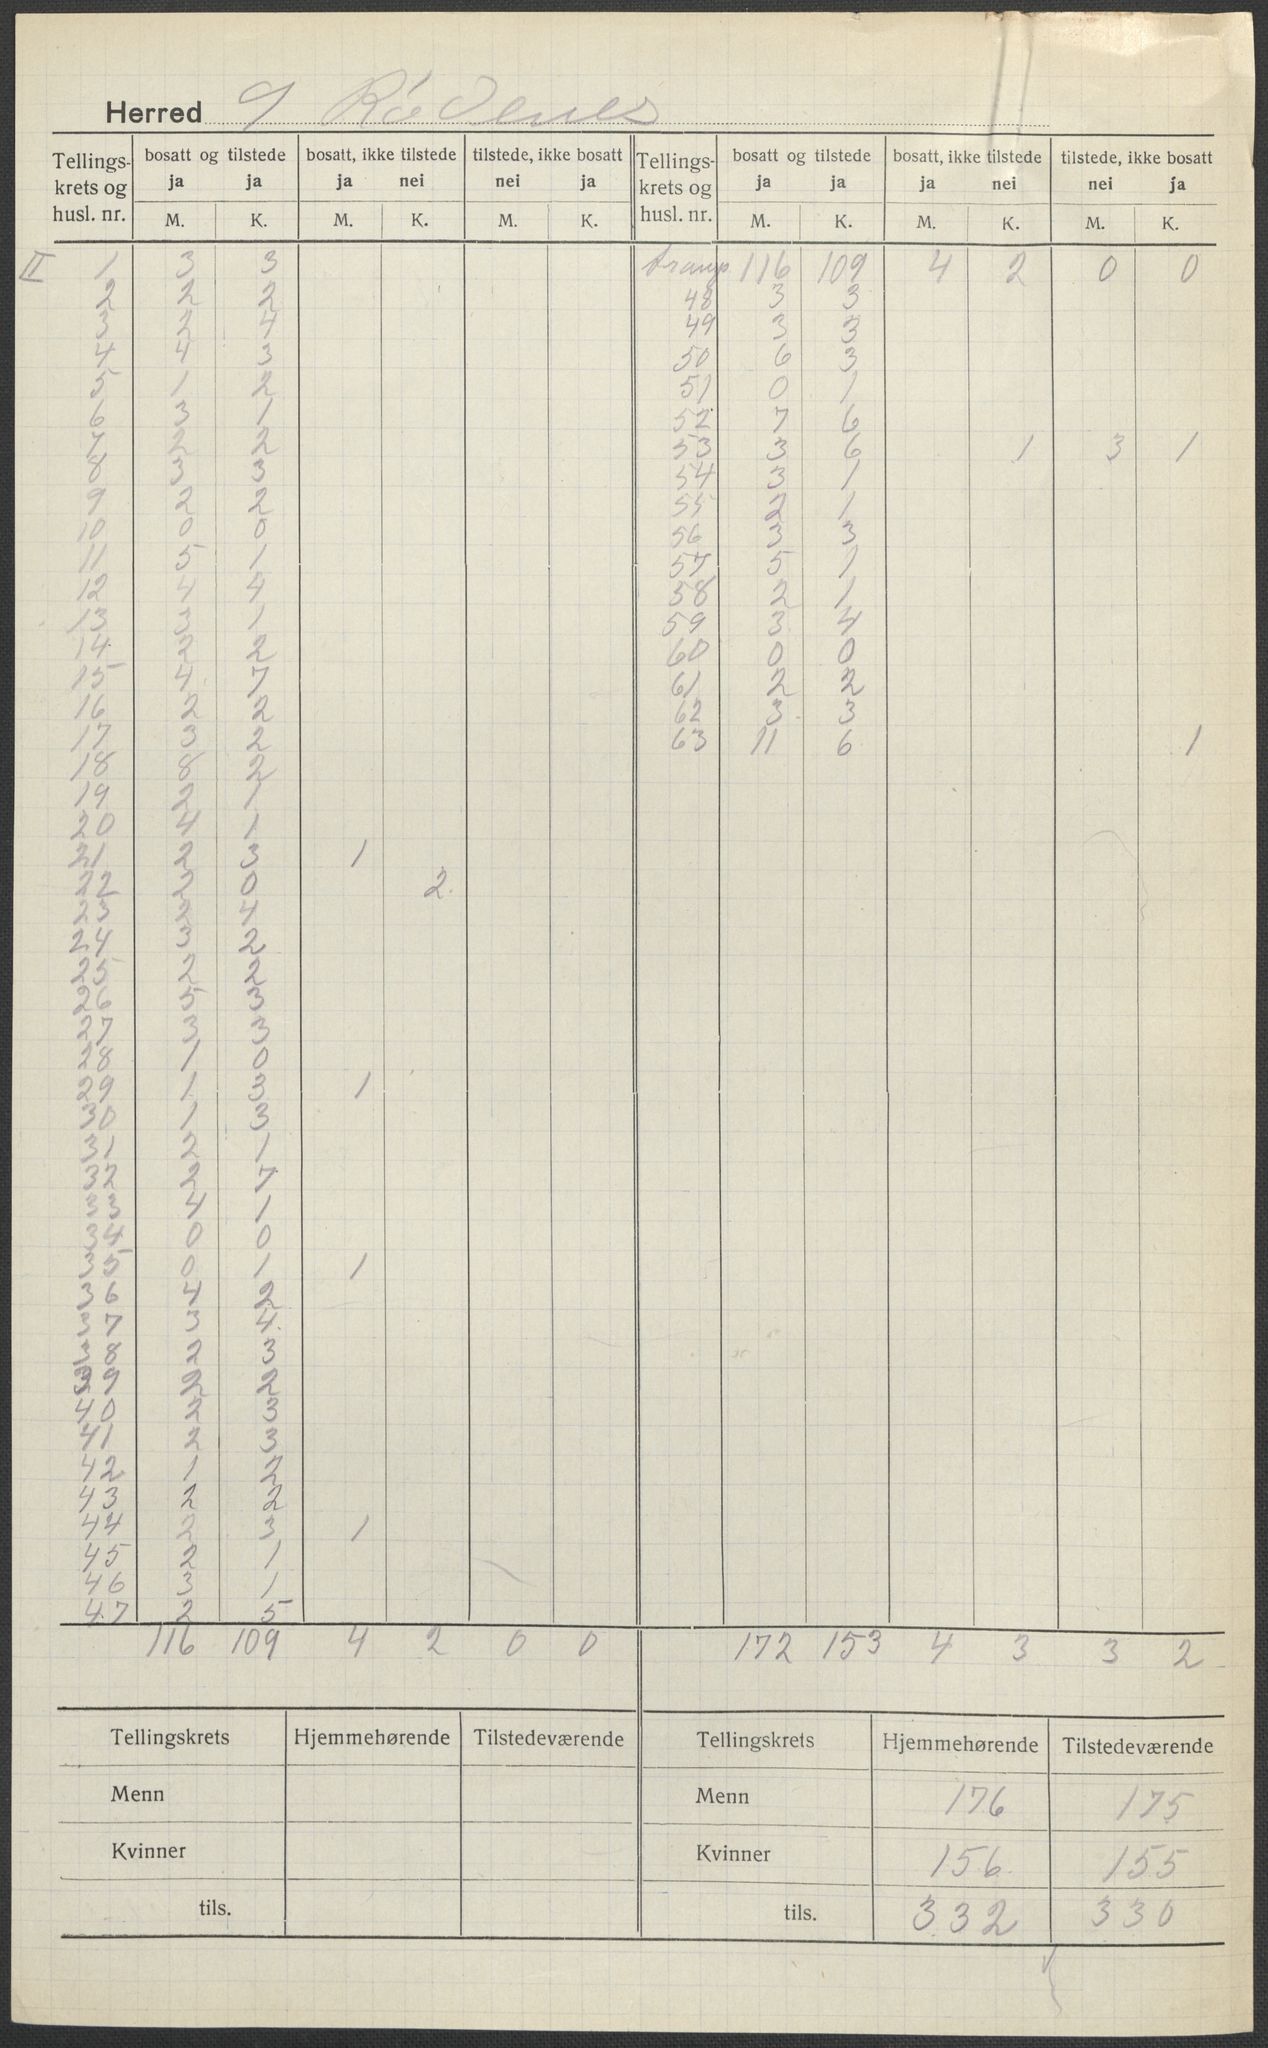 Herred 9 Rödenes
Tellings-krets og husl. nr. | bosatt og tilstede ja ja | bosatt, ikke tilstede ja nei | tilstede, ikke bosatt nei ja | Tellings-krets og husl. nr. | bosatt og tilstede ja ja | bosatt, ikke tilstede ja nei | tilstede, ikke bosatt nei ja
M. K. M. K. M. K. M. K. M. K. M. K.
II 1 3 3
2 2 2
3 2 4
4 4 3
5 1 2
6 3 1
7 2 2
8 3 3
9 2 2
10 0 0
11 5 1
12 4 4
13 3 1
14 2 2
15 4 7
16 2 2
17 3 2
18 8 2
19 2 1
20 4 1
21 2 3 1
22 2 0 2
23 2 4
24 3 2
25 2 2
26 5 3
27 3 3
28 1 0
29 1 3 1
30 1 3
31 2 1
32 2 7
33 4 1
34 0 0
35 0 1 1
36 4 2
37 3 4
38 2 3
39 2 2
40 2 3
41 2 3
42 1 2
43 2 2
44 2 3 1
45 2 1
46 3 1
47 2 5
116 109 4 2 0 0
transp. 116 109 4 2 0 0
48 3 3
49 3 3
50 6 3
51 0 1
52 7 6
53 3 6 1 3 1
54 3 1
55 2 1
56 3 3
57 5 1
58 2 1
59 3 4
60 0 0
61 2 2
62 3 3
63 11 6 1
172 153 4 3 3 2
Tellingskrets Hjemmehørende Tilstedeværende
Menn
Kvinner
tils.
Tellingskrets Hjemmehørende Tilstedeværende
Menn 176 175
Kvinner 156 155
tils. 332 330